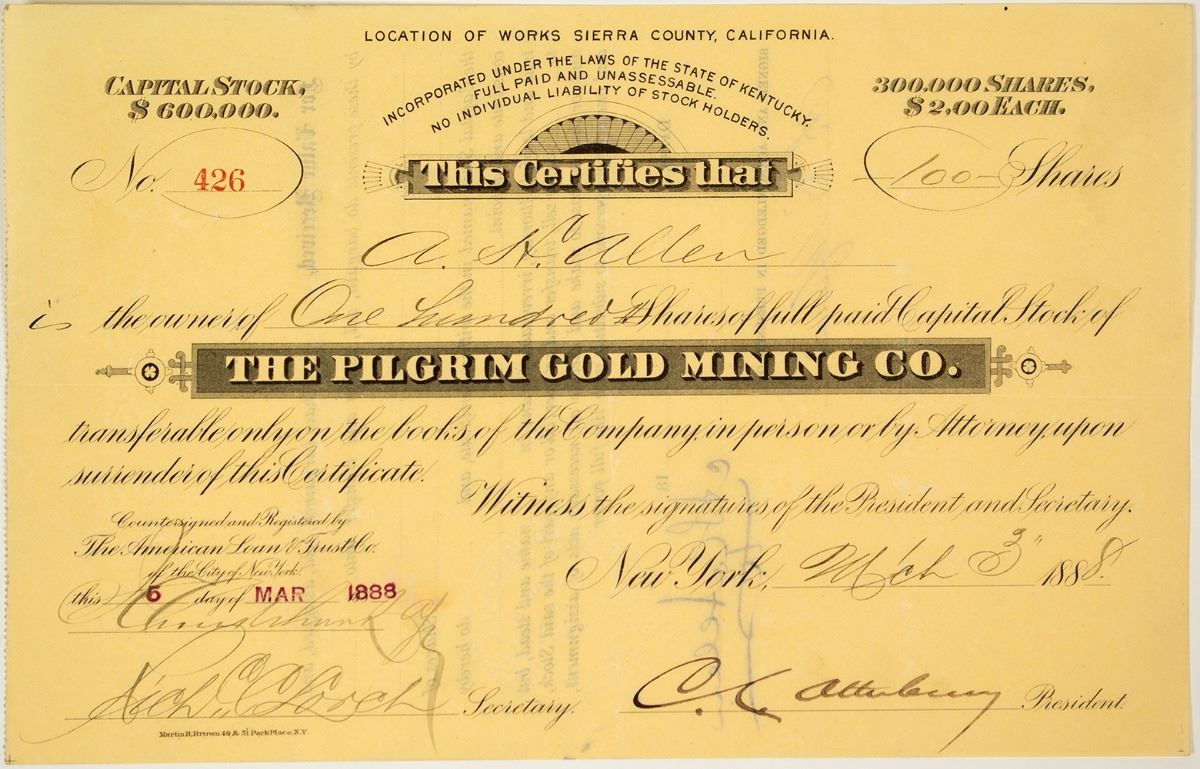 LOCATION OF WORKS SIERRA COUNTY, CALIFORNIA.
INCORPORATED UNDER THE LAWS OF THE STATE OF KENTUCKY.
FULL PAID AND UNASSESSABLE.
NO INDIVIDUAL LIABILITY OF STOCK HOLDERS.
CAPITAL STOCK,
$ 600,000.
300,000 SHARES,
$ 2,00 EACH.
No. 426
This Certifies that
-100- Shares
A. H. Allen
is the owner of One hundred Shares of full paid Capital Stock of
THE PILGRIM GOLD MINING CO.
transferable only on the books of the Company, in person or by Attorney upon
surrender of this Certificate.
Witness the signatures of the President and Secretary.
Countersigned and Registered by
The American Loan & Trust Co.
of the City of New York.
this 5 day of MAR 1888
New York, Mch 3" 1888.
Secretary.
C. C. Atterbury President.
Martin B. Brown 49 & 51 Park Place, N.Y.